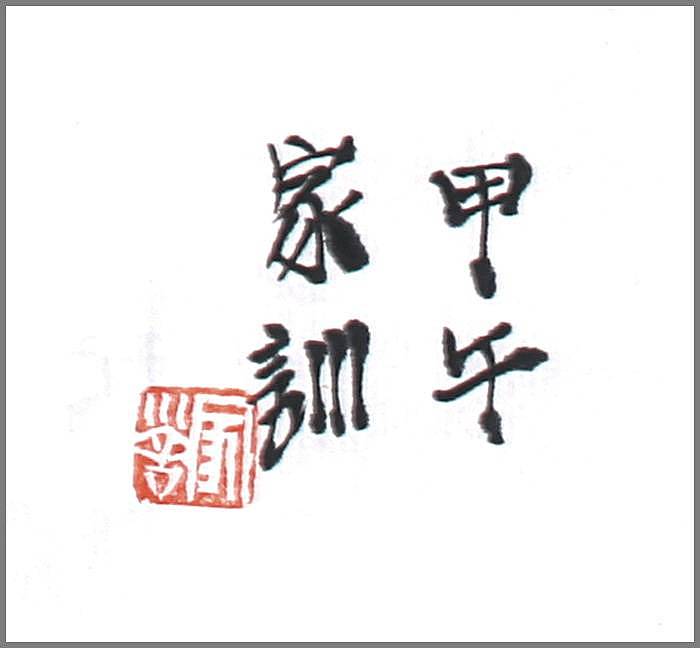 甲午
家訓